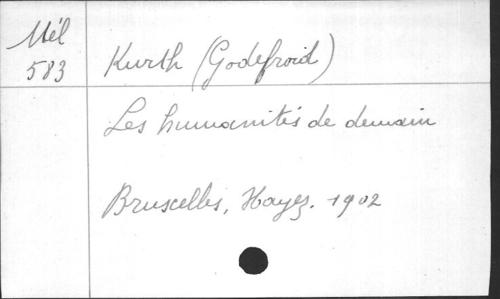 Mél
583
Kurth (Godefroid)
Les humanités de demain
Bruxelles, Hayez. 1902